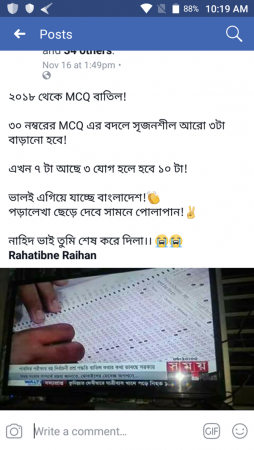 88% 10:19 AM
Posts
and 34 others.
Nov 16 at 1:49pm •
২০১৮ থেকে MCQ বাতিল!
৩০ নম্বরের MCQ এর বদলে সৃজনশীল আরো ৩টা
বাড়ানো হবে!
এখন ৭ টা আছে ৩ যোগ হলে হবে ১০ টা!
ভালই এগিয়ে যাচ্ছে বাংলাদেশ!👏
পড়ালেখা ছেড়ে দেবে সামনে পোলাপান!✌
নাহিদ ভাই তুমি শেষ করে দিলা।। 😭😭
Rahatibne Raihan
সময়
Write a comment...
GIF